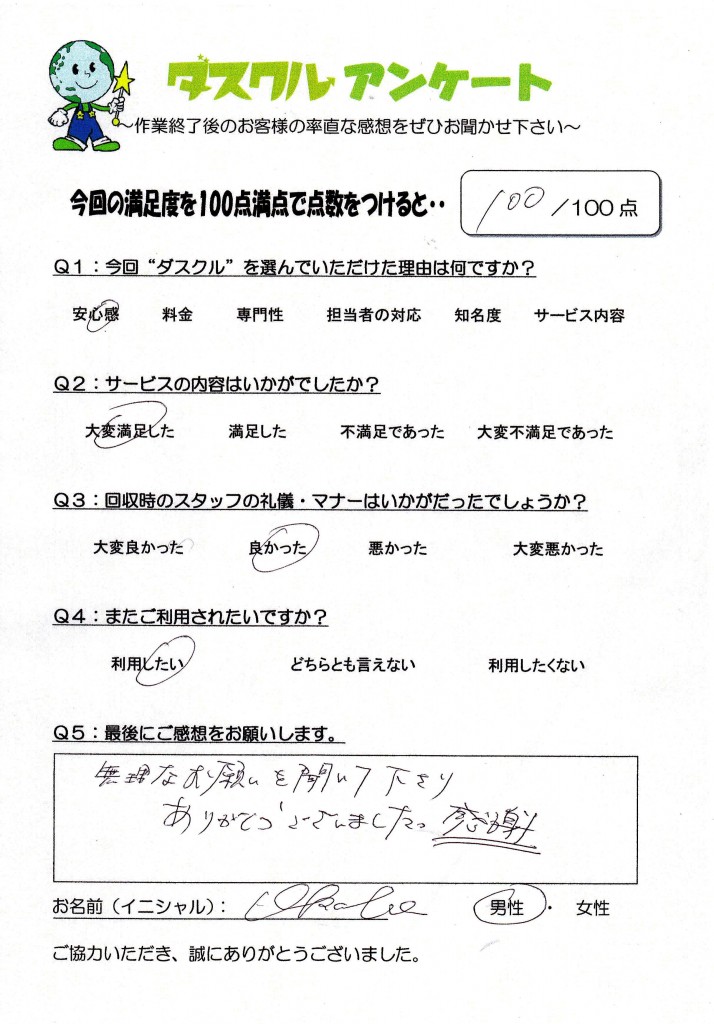 ダスクル アンケート
～作業終了後のお客様の率直な感想をぜひお聞かせ下さい～
今回の満足度を100点満点で点数をつけると‥ 100 /100 点
Q1：今回“ダスクル”を選んでいただけた理由は何ですか？
安心感 料金 専門性 担当者の対応 知名度 サービス内容
Q2：サービスの内容はいかがでしたか？
大変満足した 満足した 不満足であった 大変不満足であった
Q3：回収時のスタッフの礼儀・マナーはいかがだったでしょうか？
大変良かった 良かった 悪かった 大変悪かった
Q4：またご利用されたいですか？
利用したい どちらとも言えない 利用したくない
Q5：最後にご感想をお願いします。
無理なお願いを聞いて下さり
ありがとうございました。感謝
お名前（イニシャル）： 男性 ・ 女性
ご協力いただき、誠にありがとうございました。